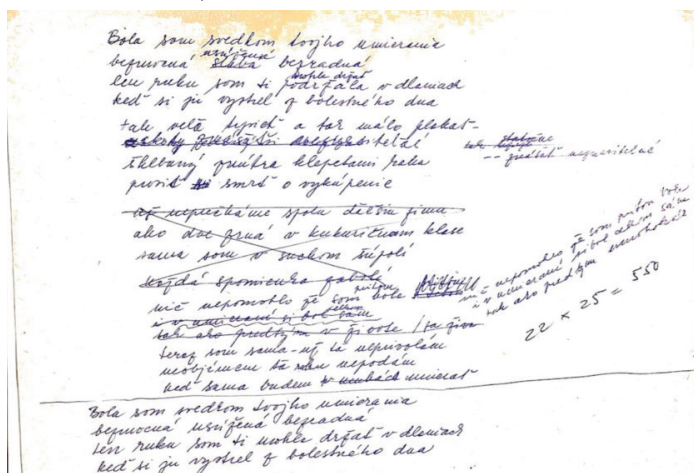 Bola som svedkom tvojho umierania
bezmocná slaba usúžená bezradná
len ruku som ti podržala mohla držať v dlaniach
keď si ju vystrel z bolestného dna
tak veľa trpieť a tak málo plakať
statočne
znášať neznesiteľné
zvnútra klepetami raka
prosiť smrť o vykúpenie
už neprečkáme spolu dlhú zimu
ako dve zrná v kukuričnom klase
sama som v suchom šúpolí
každá spomienka zabolí
nič nepomohlo že som bola pritom
i v umieraní si bol sám
tak ako predtým v živote
teraz som sama - už ťa neprivolám
neobjímem ťa ruku nepodám
keď sama budem umierať
nič nepomohlo že som pritom bola
i v umieraní si bol celkom sám
tak ako predtým
22 x 25 = 550
Bola som svedkom tvojho umierania
bezmocná usúžená bezradná
len ruku som ti mohla držať v dlaniach
keď si ju vystrel z bolestného dna